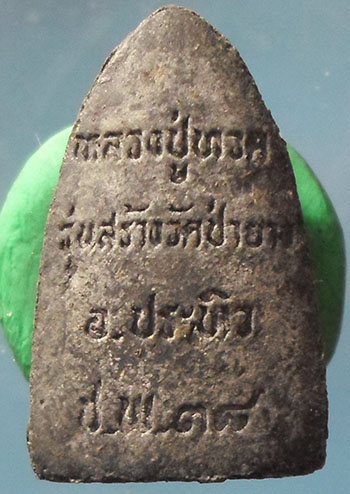 หลวงปู่ทวด
รุ่นสร้างวัดป่ายาง
อ.ประทิว
ช.พ.๓๘